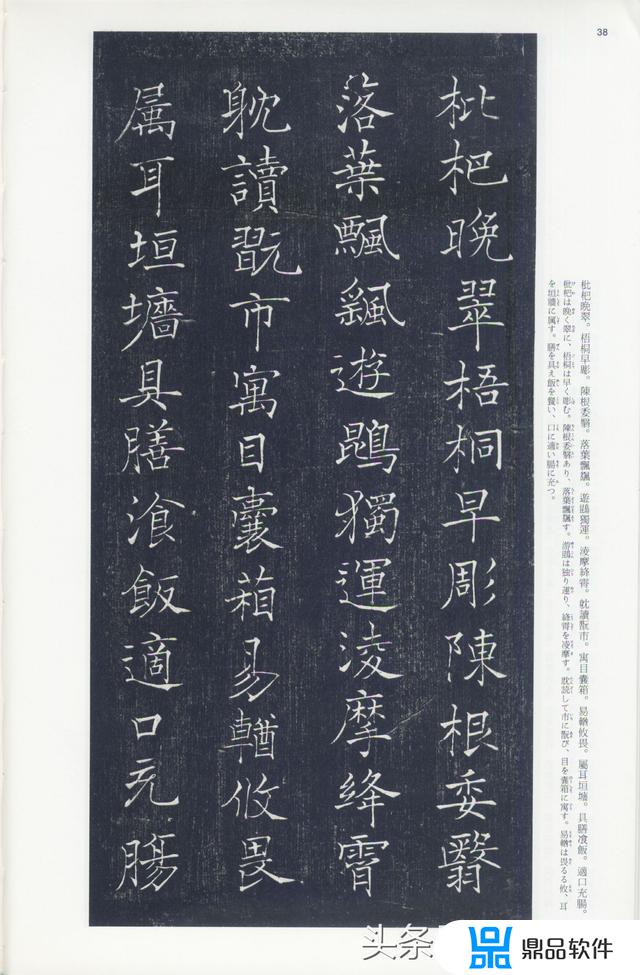 38
枇杷晚翠梧桐早彫陳根委翳
落葉飄颻遊鵾獨運淩摩絳霄
耽讀翫市寓目囊葙易輶攸畏
属耳垣墻具膳湌飯適口充腸
枇杷晚翠。梧桐早彫。陳根委翳。落葉飄颻。遊鵾獨運。淩摩絳霄。耽讀翫市。寓目囊箱。易輶攸畏。屬耳垣墻。具膳湌飯。適口充腸。
枇杷は晚く翠に、梧桐は早く彫む。陳根委翳あり、落葉飄颻す。游鵾は独り運り、絳霄を凌摩す。耽読して市に翫び、目を囊箱に寓す。易輶は畏るる攸、耳
を垣墻に属す。膳を具え飯を餐い、口に適い腸に充つ。
头条
鼎品软件